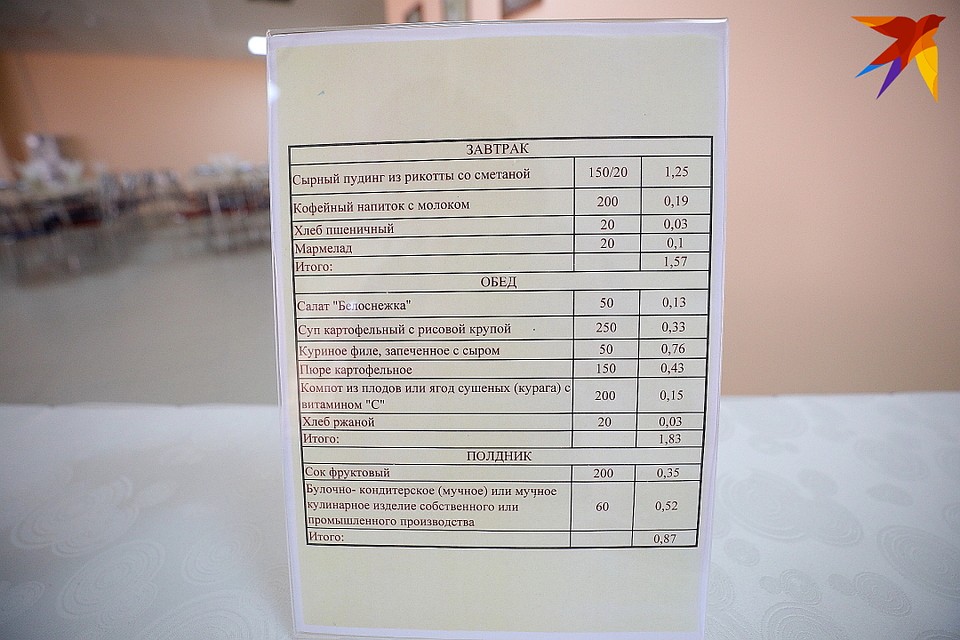 ЗАВТРАК
Сырный пудинг из рикотты со сметаной 150/20 1,25
Кофейный напиток с молоком 200 0,19
Хлеб пшеничный 20 0,03
Мармелад 20 0,1
Итого: 1,57
ОБЕД
Салат "Белоснежка" 50 0,13
Суп картофельный с рисовой крупой 250 0,33
Куриное филе, запеченное с сыром 50 0,76
Пюре картофельное 150 0,43
Компот из плодов или ягод сушеных (курага) с
витамином "С" 200 0,15
Хлеб ржаной 20 0,03
Итого: 1,83
ПОЛДНИК
Сок фруктовый 200 0,35
Булочно- кондитерское (мучное) или мучное
кулинарное изделие собственного или 60 0,52
промышленного производства
Итого: 0,87